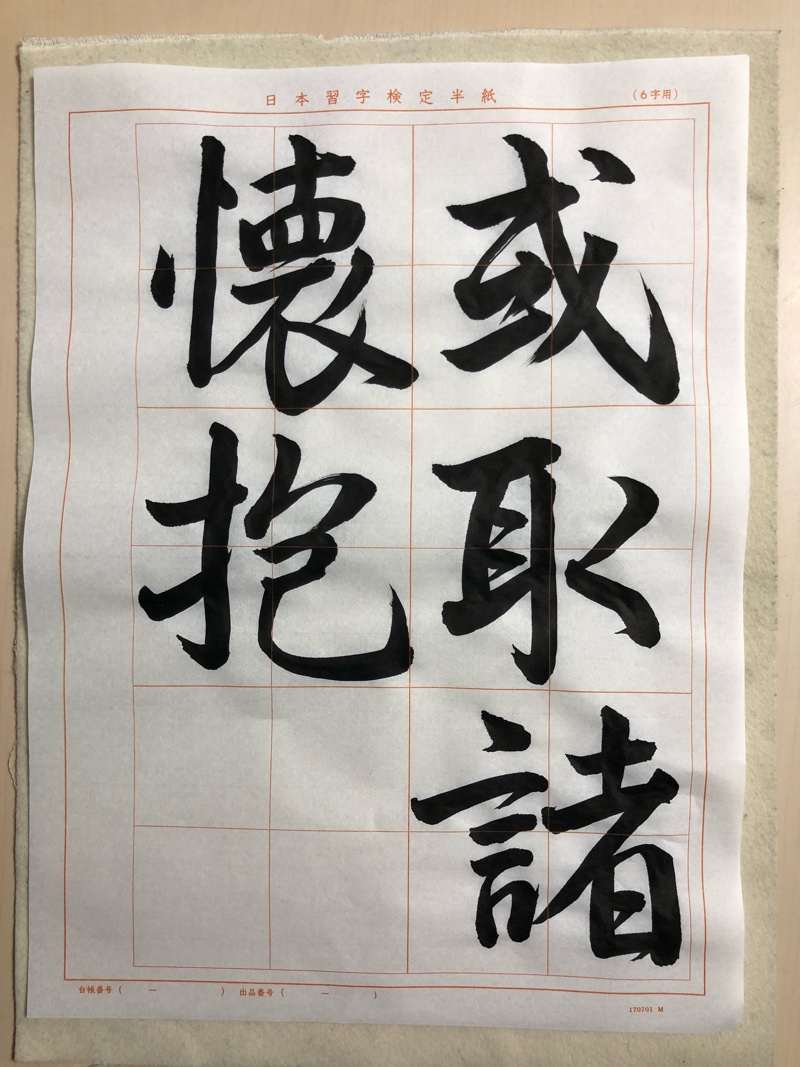 日本習字検定半紙
(6字用)
或取諸
懐抱
台帳番号(　ー　)　出品番号(　ー　)
170701 M